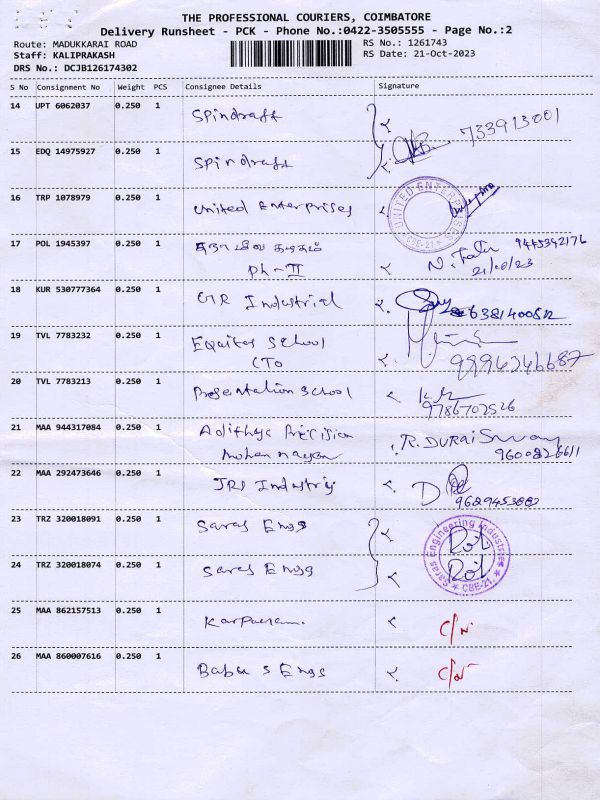 THE PROFESSIONAL COURIERS, COIMBATORE
Delivery Runsheet - PCK - Phone No.:0422-3505555 - Page No.:2
Route: MADUKKARAI ROAD
RS No.: 1261743
Staff: KALIPRAKASH
RS Date: 21-Oct-2023
DRS No.: DCJB126174302
S No Consignment No Weight PCS Consignee Details Signature
14 UPT 6062037 0.250 1 Spindraft 733913001
15 EDQ 14975927 0.250 1 Spindraft
16 TRP 1078979 0.250 1 United Enterprises
UNITED ENTERPRISES
CBE-21
17 POL 1945397 0.250 1 9445342176
Ph-II 21/10/23
18 KUR 530777364 0.250 1 GR Industrial 6381400512
19 TVL 7783232 0.250 1 Equitas School
CTO 9994346687
20 TVL 7783213 0.250 1 Presentation School
9786702526
21 MAA 944317084 0.250 1 Adithya Precision R. DURAISWamy
Mohan nagar 9600826611
22 MAA 292473646 0.250 1 JRI Industry
9629453882
23 TRZ 320018091 0.250 1 Saras Engs
Saras Engineering Industries
CBE-21.
24 TRZ 320018074 0.250 1 Saras Engs
25 MAA 862157513 0.250 1 Karpagam C/N
26 MAA 860007616 0.250 1 Babu S Engs C/N